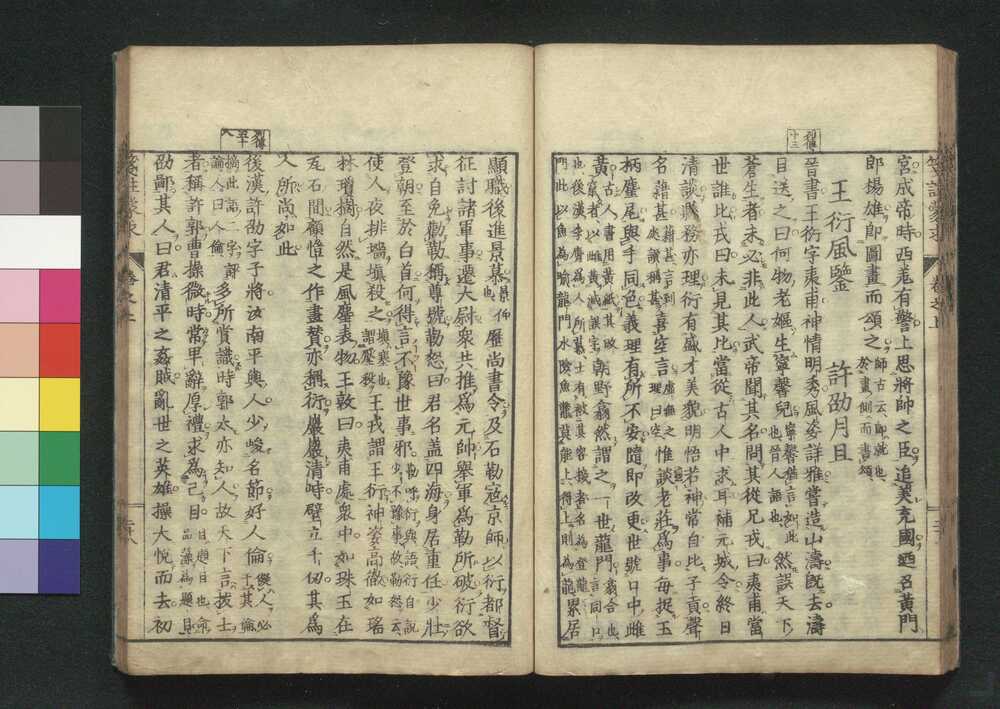 宮成帝時西羌有警上思將帥之臣追美充國廼召黃門
郎揚雄即圖畫而頌之 師古云即就也於畫側而書頌
王衍風鑒 許劭月旦
列傳十三
晉書王衍字夷甫神情明秀風姿詳雅嘗造山濤旣去濤
目送之曰何物老嫗生寧馨兒 寧馨猶言如此也晉人語也 然誤天下
蒼生者未必非此人武帝聞其名問其從兄戎曰夷甫當
世誰比戎曰未見其比當從古人中求耳補元城令終日
清談縣務亦理衍有盛才美貌明悟若神常自比子貢聲
名藉甚 藉甚言到處讙稱甚 喜空言 虛無之理曰空 惟談老莊爲事每捉玉
柄麈尾與手同色義理有所不安隨即改更世號口中雌
黃 古人書用黃紙其改竄者以雌黃滅誤字 朝野翕然謂之一世龍門
顯職後進景慕 景仰也 歷尚書令及石勒寇京師以衍都督
征討諸軍事遷大尉衆共推爲元帥舉軍爲勒所破衍欲
求自免勸勒稱尊號勒怒曰君名蓋四海身居重任少壯
登朝至於白首何得言不豫世事邪
使人夜排墻塡殺之 塡塞也謂壓殺 王戎謂王衍神姿高徹如瑤
林瓊樹自然是風塵表物王敦曰夷甫處衆中如珠玉在
瓦石間顧愷之作畫贊亦稱衍巖巖清峙壁立千仞其爲
人所尚如此
列傳五十八
後漢許劭字子將汝南平輿人少峻名節好人倫
多所賞識時郭太亦知人故天下言拔士
者稱許郭曹操微時常卑辭厚禮求爲己目 目題目也命品藻爲題目
劭鄙其人曰君清平之姦賊亂世之英雄操大悅而去初